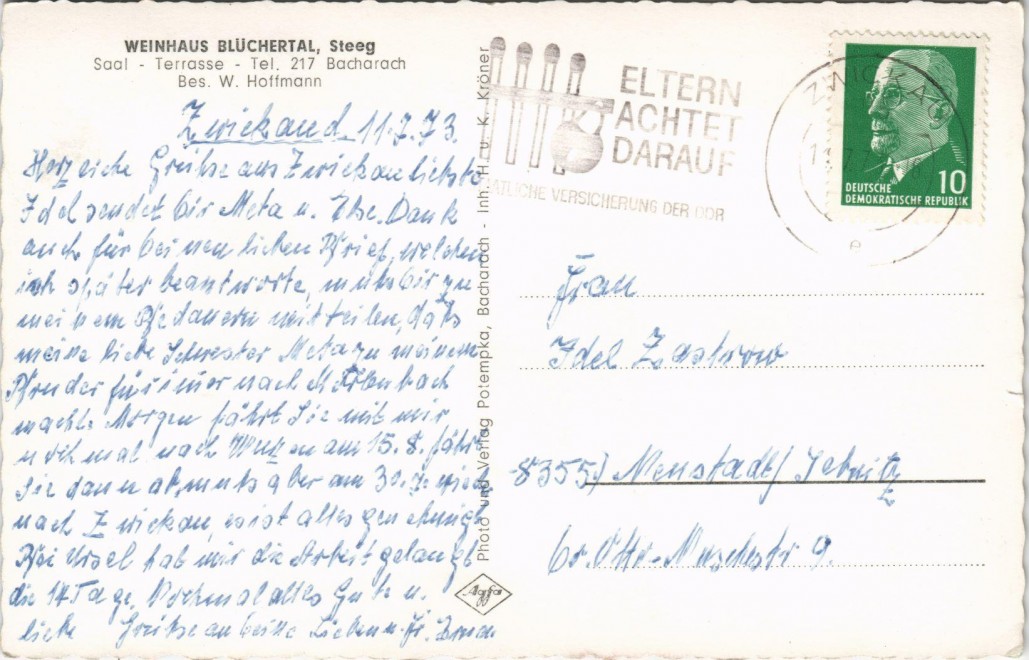 WEINHAUS BLÜCHERTAL, Steeg
Saal - Terrasse - Tel. 217 Bacharach
Bes. W. Hoffmann
Zwickau d. 11.7.73.
Herzliche Grüße aus Zwickau liebste
Idel sendet Dir Meta u. Ilse. Dank
auch für Deinen lieben Brief, welchen
ich später beantworte, muß Dir zu
meinem Bedauern mitteilen, daß
meine liebe Schwester Meta zu meinem
Bruder für immer nach
macht. Morgen fährt Sie mit mir
nochmal nach am 15.8. fährt
Sie dann ab, muß aber am 30.
nach Zwickau, es ist alles genehmigt
Bei Ursel hab mir die Arbeit gelangt
die 14 Tage. Nochmal alles Gute u.
liebe Grüße an Deine Lieben u. Fr.
Photo und Verlag Potempka, Bacharach - Inh. H. u. K. Kröner
Agfa
ELTERN
ACHTET
DARAUF
ATLICHE VERSICHERUNG DER DDR
ZWICKAU
e
DEUTSCHE
DEMOKRATISCHE REPUBLIK
10
Frau
Idel Zastrow
8355) Neustadt/Sebnitz
Dr. Otto-Nuschkestr 9.